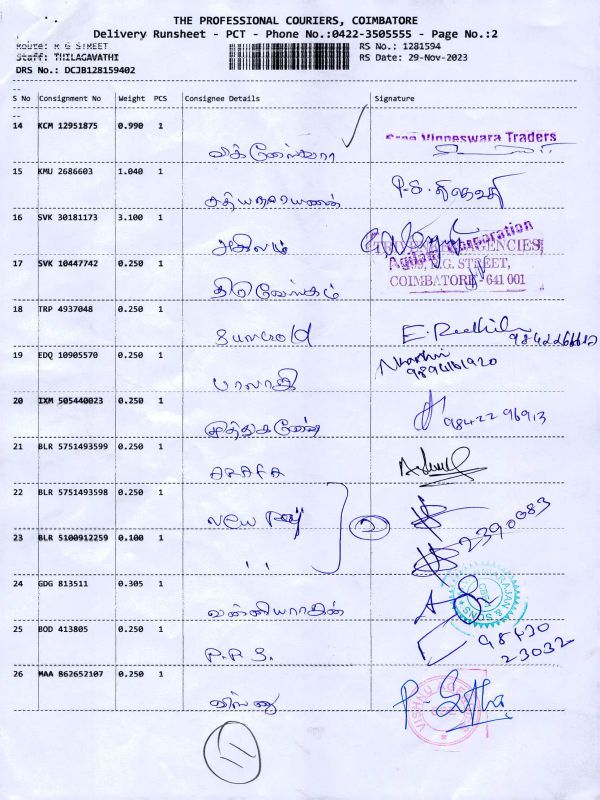 THE PROFESSIONAL COURIERS, COIMBATORE
Delivery Runsheet - PCT - Phone No.:0422-3505555 - Page No.:2
Route: R G STREET
RS No.: 1281594
Staff: THILAGAVATHI
RS Date: 29-Nov-2023
DRS No.: DCJB128159402
S No Consignment No Weight PCS Consignee Details Signature
14 KCM 12951875 0.990 1
Sree Vigneswara Traders
விக்னேஸ்வரா
15 KMU 2686603 1.040 1
சத்தியநாராயணன்
16 SVK 30181173 3.100 1
அகிலம்
Agilam Corporation
AGENCIES
R.G. STREET,
COIMBATORE - 641 001
17 SVK 10447742 0.250 1
திருவேங்கடம்
18 TRP 4937048 0.250 1
Sungold
98422
19 EDQ 10905570 0.250 1
பாலாஜி
20 IXM 505440023 0.250 1
முத்துகணேஷ்
98422 96913
21 BLR 5751493599 0.250 1
ARAFA
22 BLR 5751493598 0.250 1
New Ray
2
2390083
23 BLR 5100912259 0.100 1
''
24 GDG 813511 0.305 1
வன்னியராஜன்
RAJAN & SONS
25 BOD 413805 0.250 1
P.R.S.
98430
23032
26 MAA 862652107 0.250 1
விஷ்ணு
VISHNU AGENCIES
11